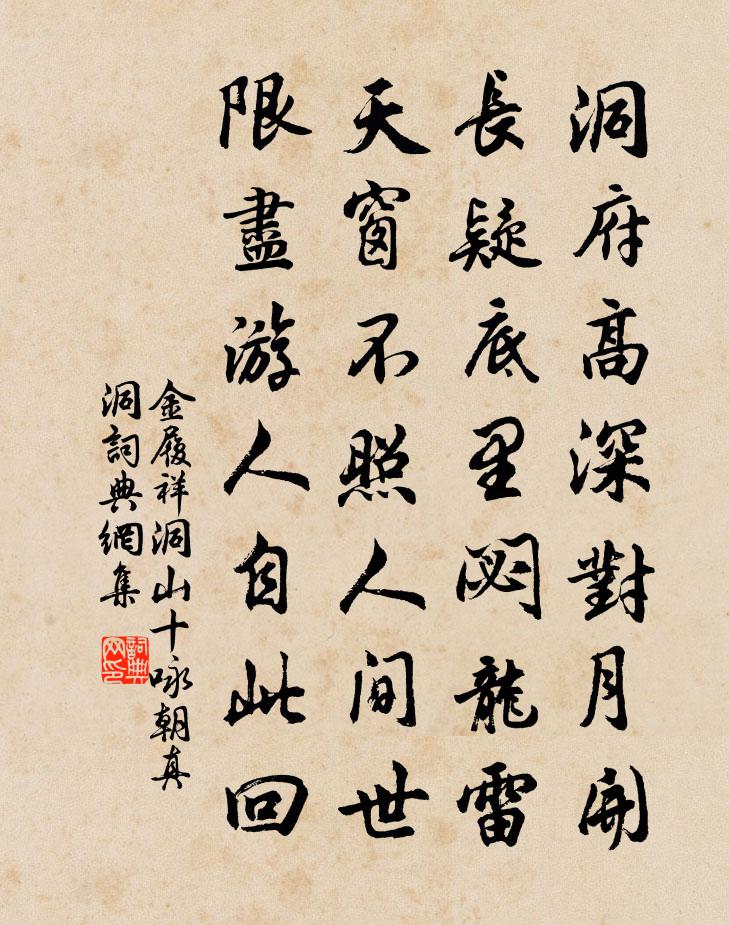 洞府高深對月開
長疑底里閟龍雷
天窗不照人间世
限盡游人自此回
金履祥洞山十咏朝真
洞詞典網集
詞典网印